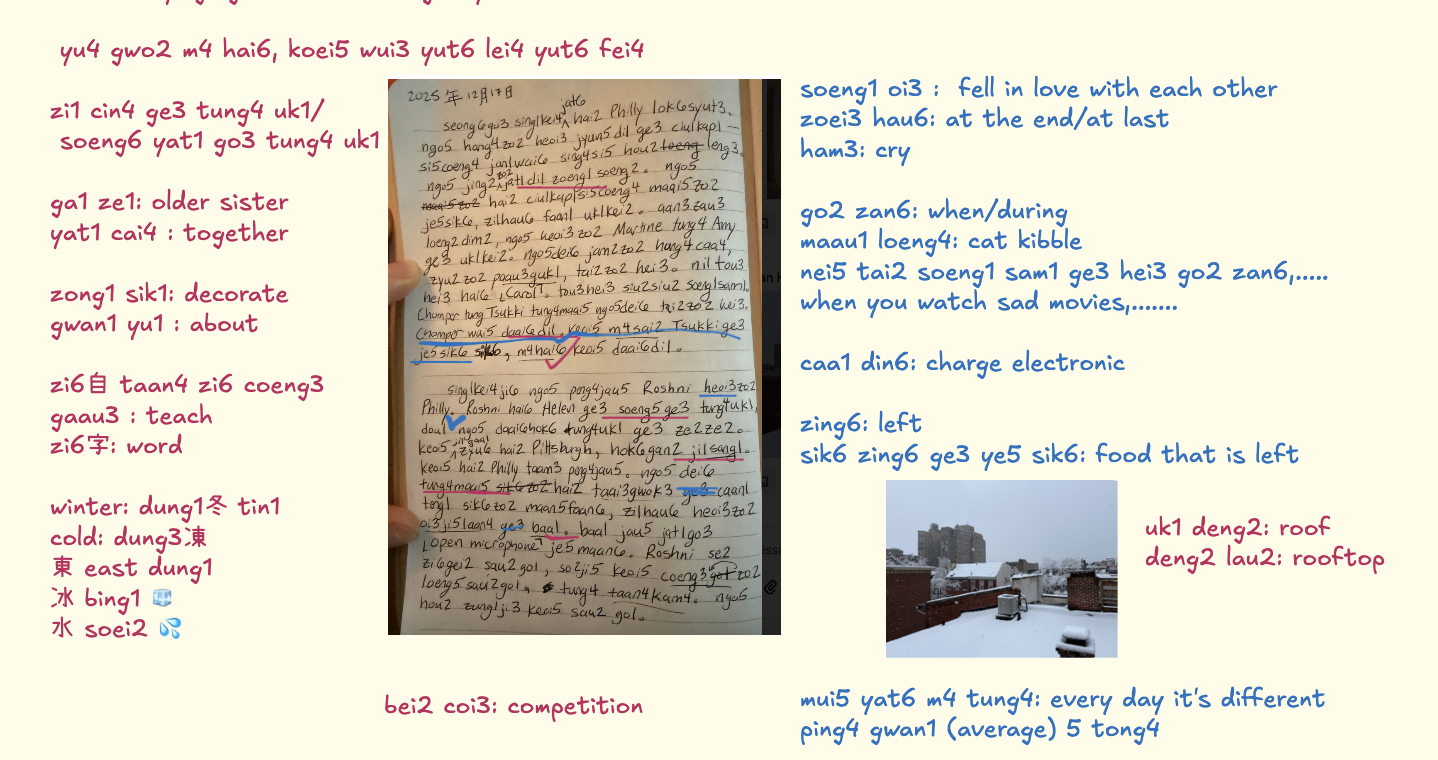 yu4 gwo2 m4 hai6, koei5 wui3 yut6 lei4 yut6 fei4
zi1 cin4 ge3 tung4 uk1/
soeng6 yat1 go3 tung4 uk1
ga1 ze1: older sister
yat1 cai4 : together
zong1 sik1: decorate
gwan1 yu1 : about
zi6自 taan4 zi6 coeng3
gaau3 : teach
zi6字: word
winter: dung1冬 tin1
cold: dung3凍
東 east dung1
冰 bing1 🧊
水 soei2 💦
2025 年 12月17日
seong6go3 sing1kei4 jat6 hai2 Philly lok6syut3.
ngo5 hang4zo2 heoi3 jyun5 di1 ge3 ciu1kap1
si5coeng4 jan1wai6 sing4si5 hou2 leng3.
ngo5 jing2zo2 jat1di1 zoeng1 soeng2. ngo5
hai2 ciu1kap1si5coeng4 maai5zo2
je5sik6, zi1hau6 faan1 uk1kei2. aan3zau3
loeng2dim2, ngo5 heoi3zo2 Martine tung4 Amy
ge3 uk1kei2. ngo5dei6 jam2zo2 hung4caa4,
zyu2zo2 paau3guk1, tai2zo2 hei3. ni1 tou3
hei3 hai6 「Carol」. tou3hei3 siu2siu2 soeng1sam1.
Chomper tung Tsukki tung4maai5 ngo5dei6 tai2zo2 hei3.
Chomper wai5 daai6di1. keoi5 m4sai2 Tsukki ge3
je5sik6, m4hai6 keoi5 daai6di1.
sing1kei4ji6 ngo5 pang4jau5 Roshni heoi3zo2
Philly. Roshni hai6 Helen ge3 soeng5ge3 tung4uk1,
dou1 ngo5 daai6hok6 tung4uk1 ge3 ze2ze2.
keoi5 ji4gaa1 zyu6 hai2 Pittsburgh, hok6gan2 ji1sang1.
keoi5 hai2 Philly taam3 pang4jau5. ngo5 dei6
tung4maai5 sik6zo2 hai2 taai3gwok3 ge3 caan1
teng1 sik6zo2 maan5faan6, zi1hau6 heoi3zo2
oi3ji5laan4 ge3 baa1. baa1 jau5 jat1go3
「open microphone」 je5maan6. Roshni se2
zi6gei2 sau2go1, so2ji5 keoi5 coeng3zo2
loeng5sau2go1, tung4 taan4kam4. ngo5
hou2 zung1ji3 keoi5 sau2 go1.
bei2 coi3: competition
soeng1 oi3 : fell in love with each other
zoei3 hau6: at the end/at last
ham3: cry
go2 zan6: when/during
maau1 loeng4: cat kibble
nei5 tai2 soeng1 sam1 ge3 hei3 go2 zan6,.....
when you watch sad movies,........
caa1 din6: charge electronic
zing6: left
sik6 zing6 ge3 ye5 sik6: food that is left
uk1 deng2: roof
deng2 lau2: rooftop
mui5 yat6 m4 tung4: every day it's different
ping4 gwan1 (average) 5 tong4